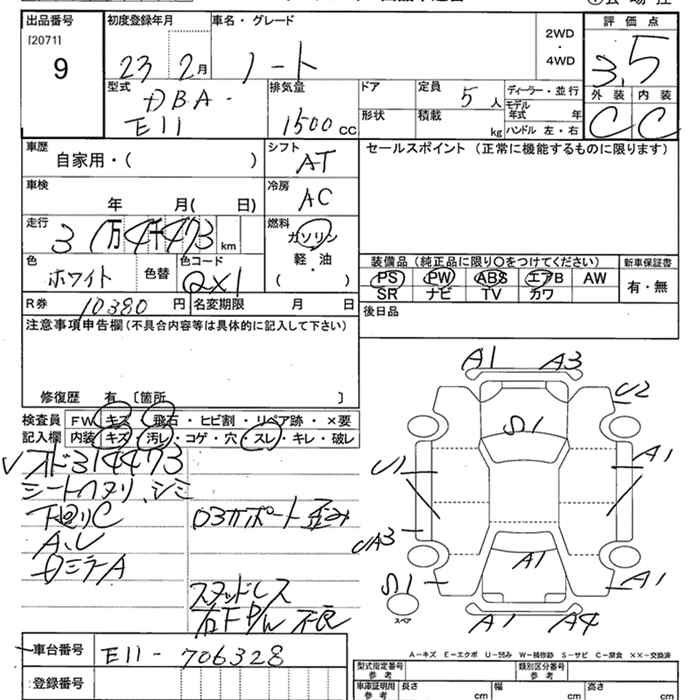 出品番号
[2071]
9
初度登録年月
23 2月
車名・グレード
ノート
2WD
・
4WD
評価点
3.5
外装 内装
C C
型式
DBA-
E11
排気量
1500cc
ドア
形状
定員
5人
積載
kg
ディーラー・並行
モデル
年式 年
ハンドル 左・右
車歴
自家用・( )
シフト
AT
車検
年 月( 日)
冷房
AC
走行
31万4千473km
燃料
ガソリン
軽・油
・
( )
色
ホワイト
色替
色コード
QX1
R券 10380円
名変期限 月 日
セールスポイント (正常に機能するものに限ります)
装備品 (純正品に限り〇をつけてください)
PS PW ABS エアB AW
SR ナビ TV カワ
新車保証書
有・無
後日品
注意事項申告欄(不具合内容等は具体的に記入して下さい)
修復歴 有 [箇所 ]
検査員
記入欄
FW キズ・飛石・ヒビ割・リペア跡・×要
内装 キズ・汚レ・コゲ・穴・スレ・キレ・破レ
オド314473
シートヘタリ、シミ
下廻リC
A、U
D03サポート歪み
スタッドレス
右F P/W 不良
A1 A3
U2
S1
U1 A1
UA3
A1
S1 A1
スペア
A1 A4
A-キズ E-エクボ U-凹み W-補修跡 S-サビ C-腐食 ××-交換済
車台番号 E11-706328
登録番号
型式指定番号
参考
類別区分番号
参考
車庫証明用
参考
長さ cm
幅 cm
高さ cm